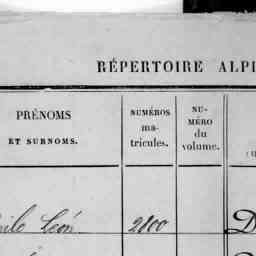 RÉPERTOIRE ALP
PRÉNOMS
ET SURNOMS.
NUMÉROS
ma-
tricules.
NU-
MÉRO
du
volume.
León 2800 D